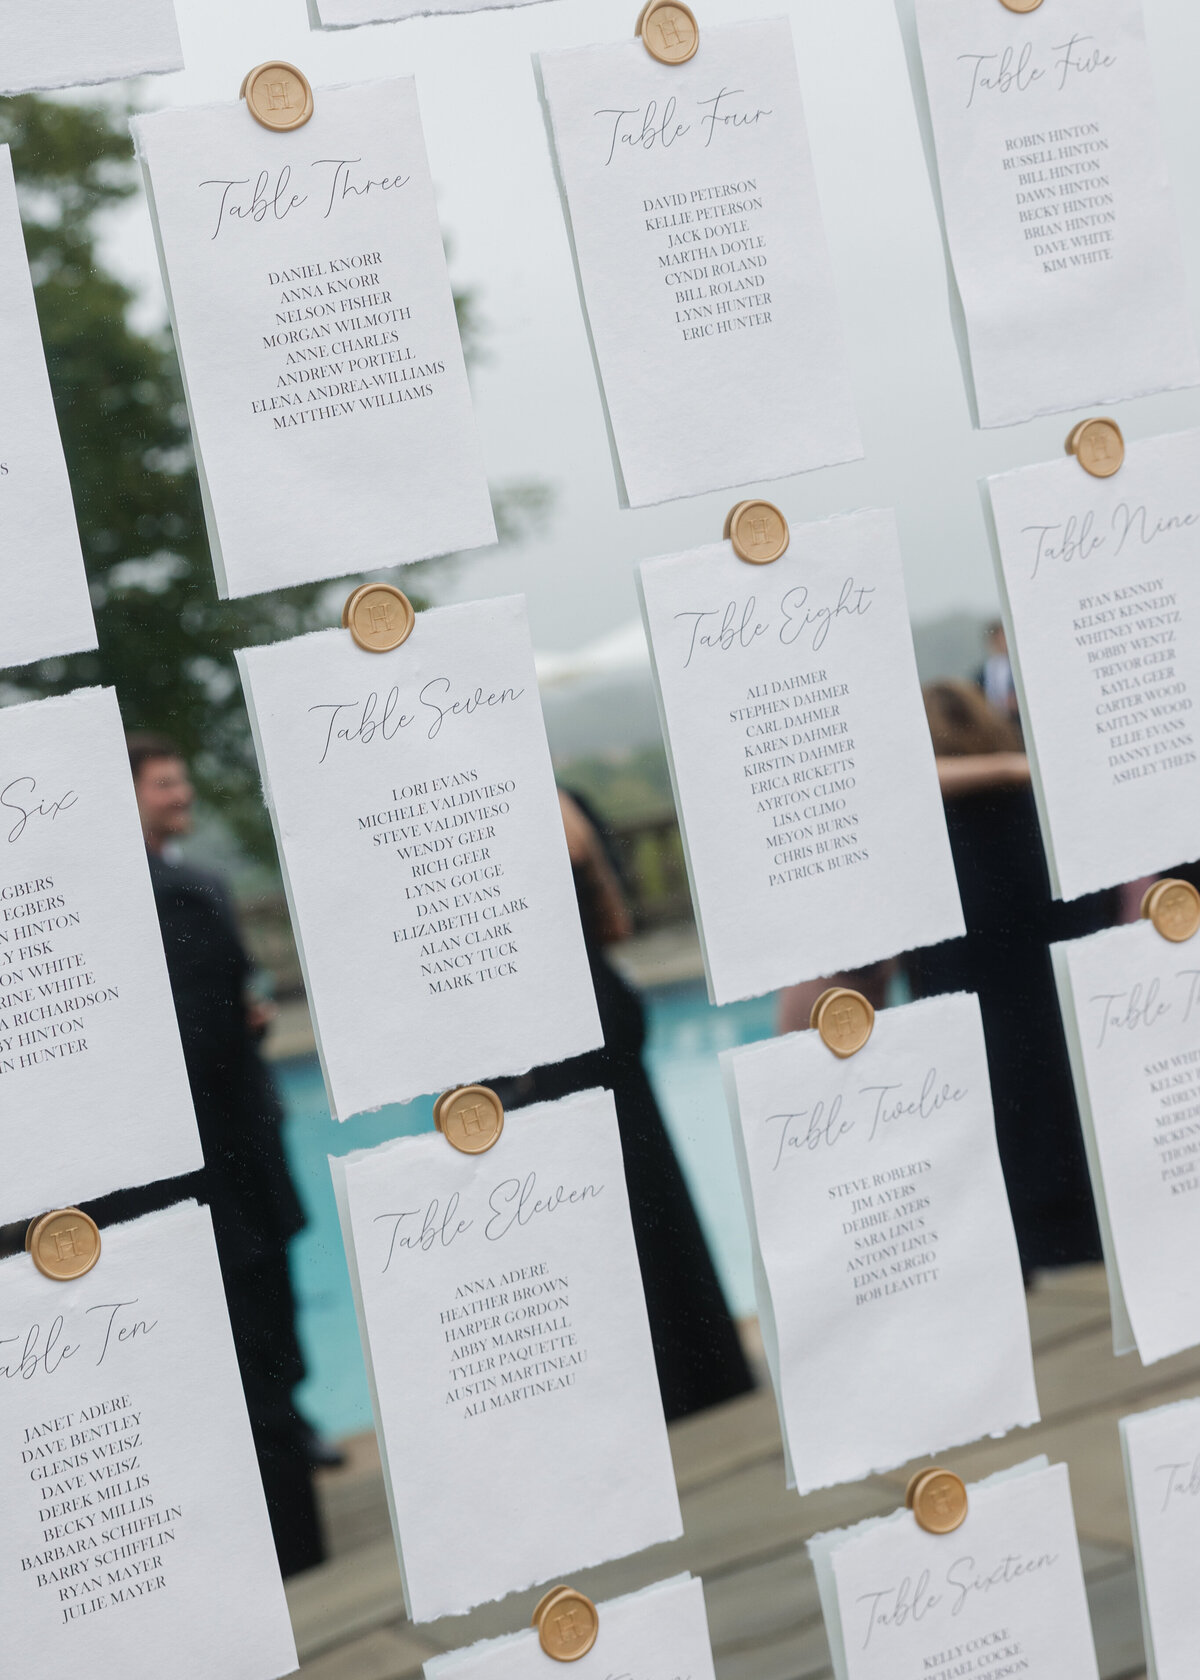 H
Table Three
DANIEL KNORR
ANNA KNORR
NELSON FISHER
MORGAN WILMOTH
ANNE CHARLES
ANDREW PORTELL
ELENA ANDREA-WILLIAMS
MATTHEW WILLIAMS
H
Table Four
DAVID PETERSON
KELLIE PETERSON
JACK DOYLE
MARTHA DOYLE
CYNDI ROLAND
BILL ROLAND
LYNN HUNTER
ERIC HUNTER
Table Five
ROBIN HINTON
RUSSELL HINTON
BILL HINTON
DAWN HINTON
BECKY HINTON
BRIAN HINTON
DAVE WHITE
KIM WHITE
S
Six
EGBERS
EGBERS
N HINTON
LY FISK
ON WHITE
RINE WHITE
A RICHARDSON
BY HINTON
IN HUNTER
H
Table Seven
LORI EVANS
MICHELE VALDIVIESO
STEVE VALDIVIESO
WENDY GEER
RICH GEER
LYNN GOUGE
DAN EVANS
ELIZABETH CLARK
ALAN CLARK
NANCY TUCK
MARK TUCK
H
Table Eight
ALI DAHMER
STEPHEN DAHMER
CARL DAHMER
KAREN DAHMER
KIRSTIN DAHMER
ERICA RICKETTS
AYRTON CLIMO
LISA CLIMO
MEYON BURNS
CHRIS BURNS
PATRICK BURNS
H
Table Nine
RYAN KENNDY
KELSEY KENNEDY
WHITNEY WENTZ
BOBBY WENTZ
TREVOR GEER
KAYLA GEER
CARTER WOOD
KAITLYN WOOD
ELLIE EVANS
DANNY EVANS
ASHLEY THEIS
H
Table Ten
JANET ADERE
DAVE BENTLEY
GLENIS WEISZ
DAVE WEISZ
DEREK MILLIS
BECKY MILLIS
BARBARA SCHIFFLIN
BARRY SCHIFFLIN
RYAN MAYER
JULIE MAYER
H
Table Eleven
ANNA ADERE
HEATHER BROWN
HARPER GORDON
ABBY MARSHALL
TYLER PAQUETTE
AUSTIN MARTINEAU
ALI MARTINEAU
H
Table Twelve
STEVE ROBERTS
JIM AYERS
DEBBIE AYERS
SARA LINUS
ANTONY LINUS
EDNA SERGIO
BOB LEAVITT
Table T
SAM WHI
KELSEY
THOM
PAIGE
KYLE
H
H
Table Sixteen
KELLY COCKE
COCKE